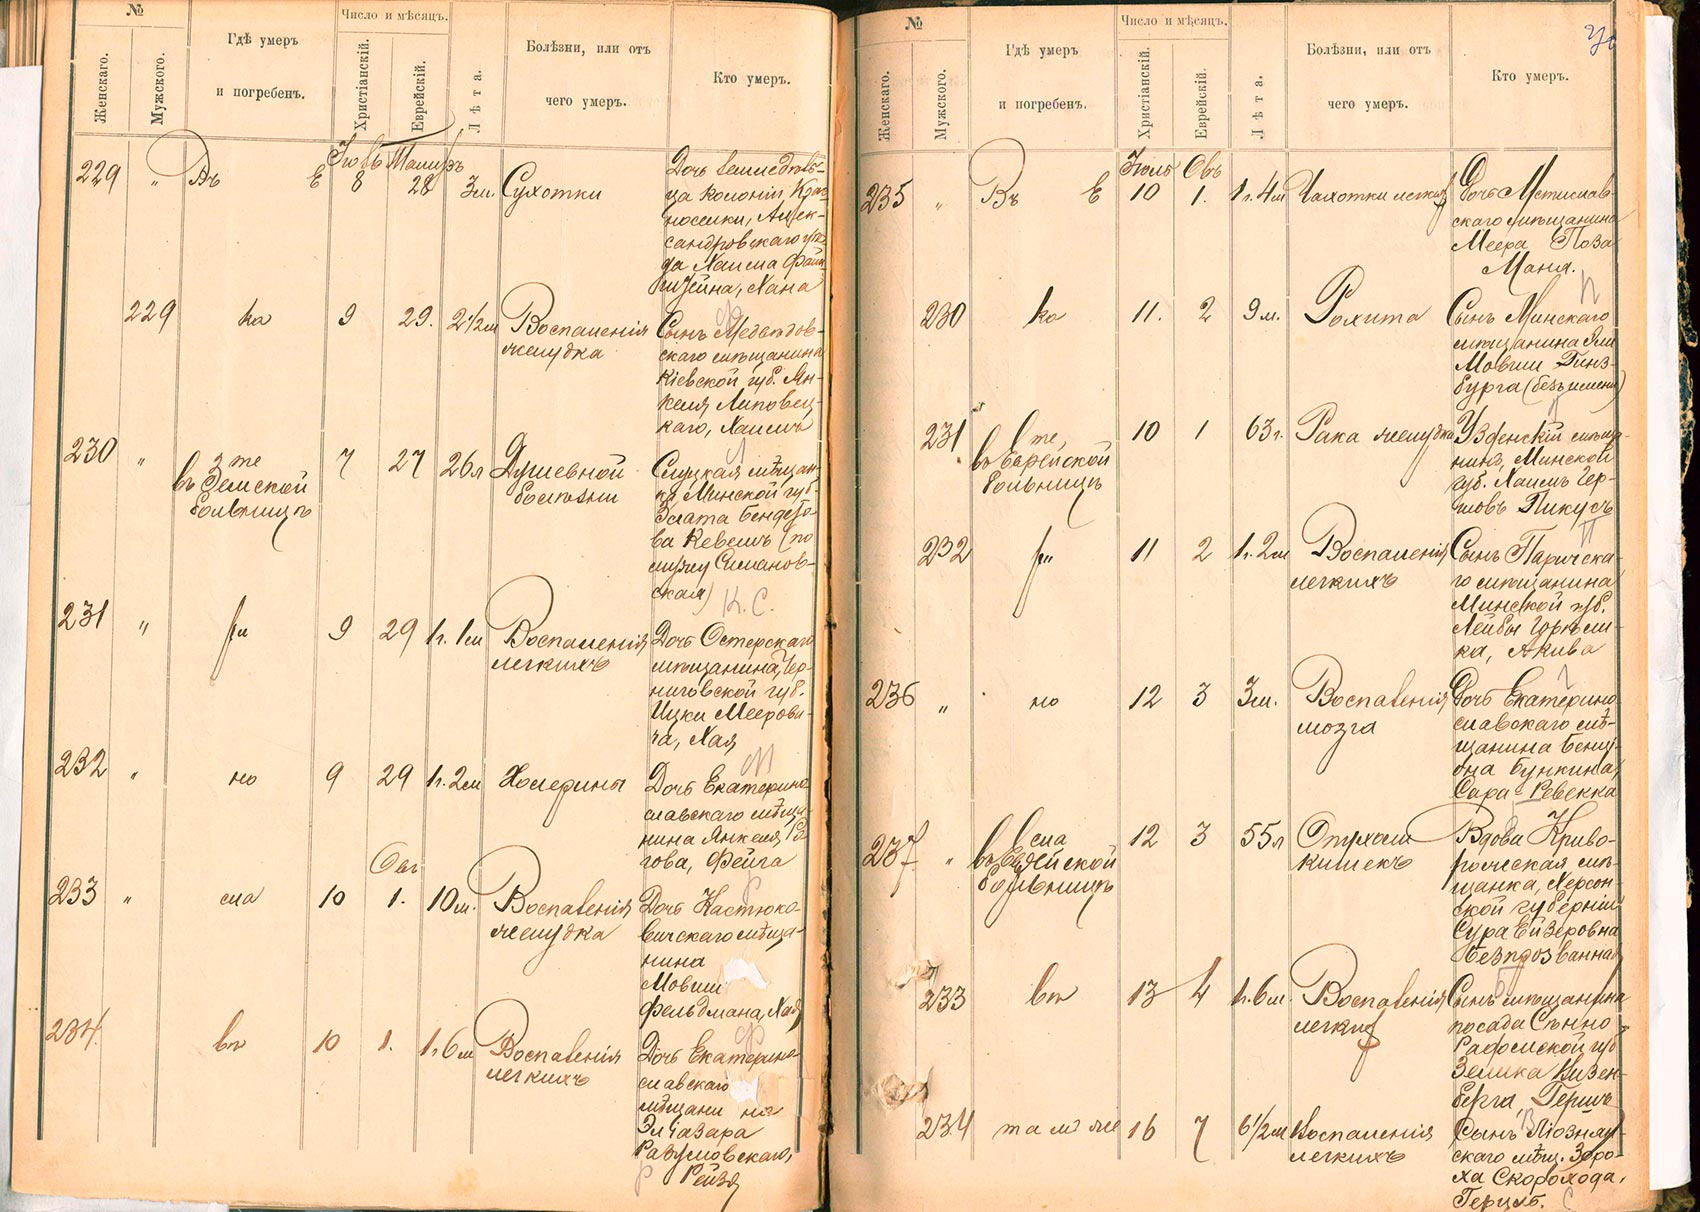 №
Число и мѣсяцъ.
Женскаго.
Мужского.
Гдѣ умеръ
и погребенъ.
Христіанскій.
Еврейскій.
Лѣта.
Болѣзни, или отъ
чего умеръ.
Кто умеръ.
229 " Въ Е
8 28 3м. Сухотки
Дочь
ца колоніи
носелки, Алек-
сандровскаго уѣз-
да Хаима Фаин-
штейна, Хана
229 ка 9 29. 2 1/2м Воспаленія
желудка
Сынъ
скаго мѣщанина
Кіевской губ. Ян-
келя Липовец-
каго, Хаимъ
230 " те 7 27 26л Душевной
въ Земской
больницѣ
болѣзни
Слуцкая мѣщан-
ка Минской губ.
Злата
ва Кевешъ (по
мужу Симанов-
ская)
К. С.
231 " ри 9 29 1г. 1м Воспаленія
легкихъ
Дочь Остерскаго
мѣщанина, Чер-
ниговской губ.
Ицки Меерови-
ча, Хая
232 " но 9 29 1г. 2м Холерины
Дочь Екатерино
славскаго мѣща-
нина Янкеля Ро
гова, Фейга
Овъ
233 " сла 10 1. 10м. Воспаленія
желудка
Дочь Костюко-
вичскаго мѣща-
нина
Мовши
Фельдмана, Хая
234. вѣ 10 1. 1г. 6м Воспаленія
легкихъ
Дочь Екатерино
славскаго
мѣщани на
Эліазара
Разумовскаго,
Рейзя
№
Число и мѣсяцъ.
Женскаго.
Мужского.
Гдѣ умеръ
и погребенъ.
Христіанскій.
Еврейскій.
Лѣта.
Болѣзни, или отъ
чего умеръ.
Кто умеръ.
Іюль Овъ
235 " Въ Е 10 1. 1г. 4м Чахотки легких
Дочь Мстислав-
скаго мѣщанина
Меера Поза
Маня.
230 ка 11. 2 9м. Рахита
Сынъ Минскаго
мѣщанина Эли
Мовши Гинз-
бурга (безъ имени)
231 те, 10 1 63г. Рака желудка
въ Еврейской
больницѣ
Узденскій мѣща-
нинъ, Минской
губ. Хаимъ Гер-
шовъ Пикусъ
232 ри 11 2 1г. 2м Воспаленія
легкихъ
Сынъ Паричска-
го мѣщанина
Минской губ.
Лейбы Горѣли-
ка, Акива
236 " но 12 3 3м. Воспаленія
мозга
Дочь Екатерино
славскаго мѣ-
щанина Бенці-
она Бункина,
Сара-Ревекка
237 " сла 12 3 55л Опухоли
въ Еврейской
больницѣ
кишекъ
Вдова Криво-
рожская мѣ-
щанка, Херсон-
ской губерніи
Сура Ейзеровна
Безпрозванная
233 вѣ 13 4 1г. 6м. Воспаленія
легких
Сынъ мѣщанина
посада Сѣнно
Радомской губ
Зелика Визен-
берга, Гершъ
234 та мъ же 16 7 6 1/2м Воспаленія
легкихъ
Сынъ Ліознян-
скаго мѣщ. Зоро-
ха Скорохода,
Герцль.
С